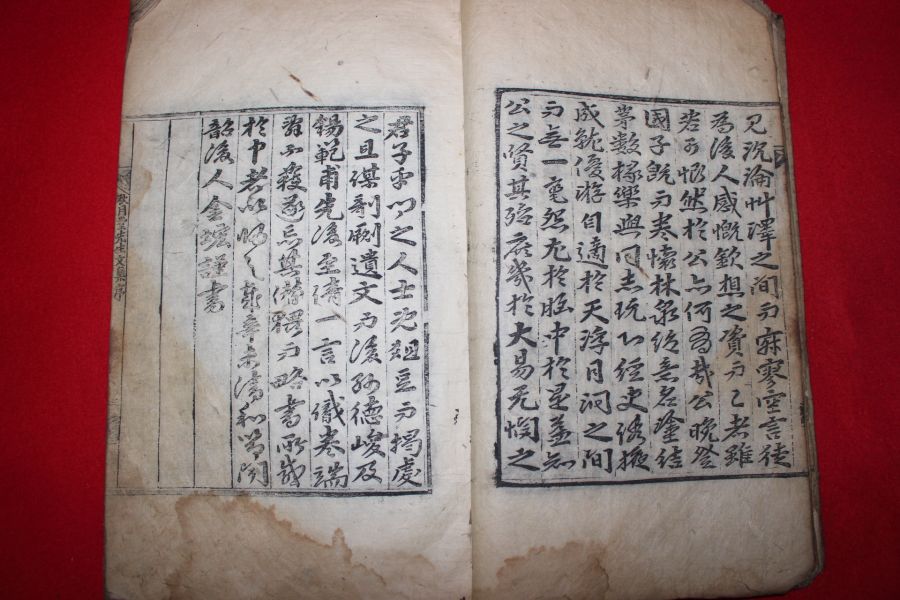 見沉淪艸澤之間而寂寥空言徒
為後人感慨欽想之資而已者雖
若可恨然於公亦何有哉公晚登
國子旣而卷懷林泉絶意名塗結
茅數椽樂與同志玩心經史誘掖
成就優游自適於天淵月洞之間
而無一毫怨尤於胸中於是益知
公之賢其殆庶幾於大易无悶之
君子乎一之人士先俎豆而揭虔
之且謀剞劂遺文而後孫德峻及
錫範甫先後至請一言以識卷端
辭不獲遂忘其僭猥而略書所感
於中者以歸之辛未淸和節聞
韶後人金謹書
月先生文集序